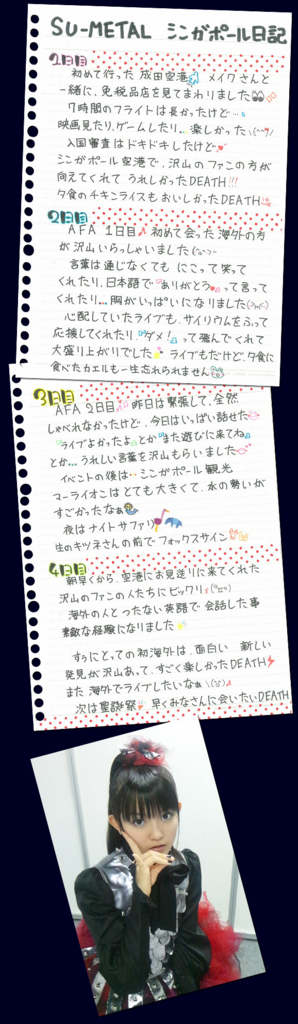 SU-METAL シンガポール日記
1日目
初めて行った 成田空港 メイクさんと
一緒に、免税品店を見てまわりました
7時間のフライトは長かったけど…
映画見たり、ゲームしたり… 楽しかった \(^^)/
入国審査はドキドキしたけど
シンガポール空港で、沢山のファンの方が
向えてくれて うれしかったDEATH!!!
夕食のチキンライスもおいしかったDEATH
2日目
AFA 1日目 初めて会った海外の方
が沢山いらっしゃいました
言葉は通じなくても にこって笑って
くれたり、日本語で"ありがとう"って言って
くれたり…胸がいっぱいになりました
心配していたライブも、サイリウムをふって
応援してくれたり、"ダメ!"って飛んでくれて
大盛り上がりでした ライブもだけど、夕食に
食べたカエルも一生忘れられません
3日目
AFA 2日目 昨日は緊張して、全然
しゃべれなかったけど、今日はいっぱい話せた
"ライブよかったよ"とか"また遊びに来てね"
とか…うれしい言葉を沢山もらいました
イベントの後は…シンガポール観光
マーライオンはとても大きくて、水の勢いが
すごかったなぁ
夜はナイトサファリ
生のキツネさんの前でフォックスサイン
4日目
朝早くから、空港にお見送りに来てくれた
沢山のファンの人たちにビックリ
海外の人とつたない英語で会話した事
素敵な経験になりました
すぅにとっての初海外は、面白い 新しい
発見が沢山あって、すごく楽しかったDEATH
また海外でライブしたいなぁ
次は聖誕祭 早くみなさんに会いたいDEATH